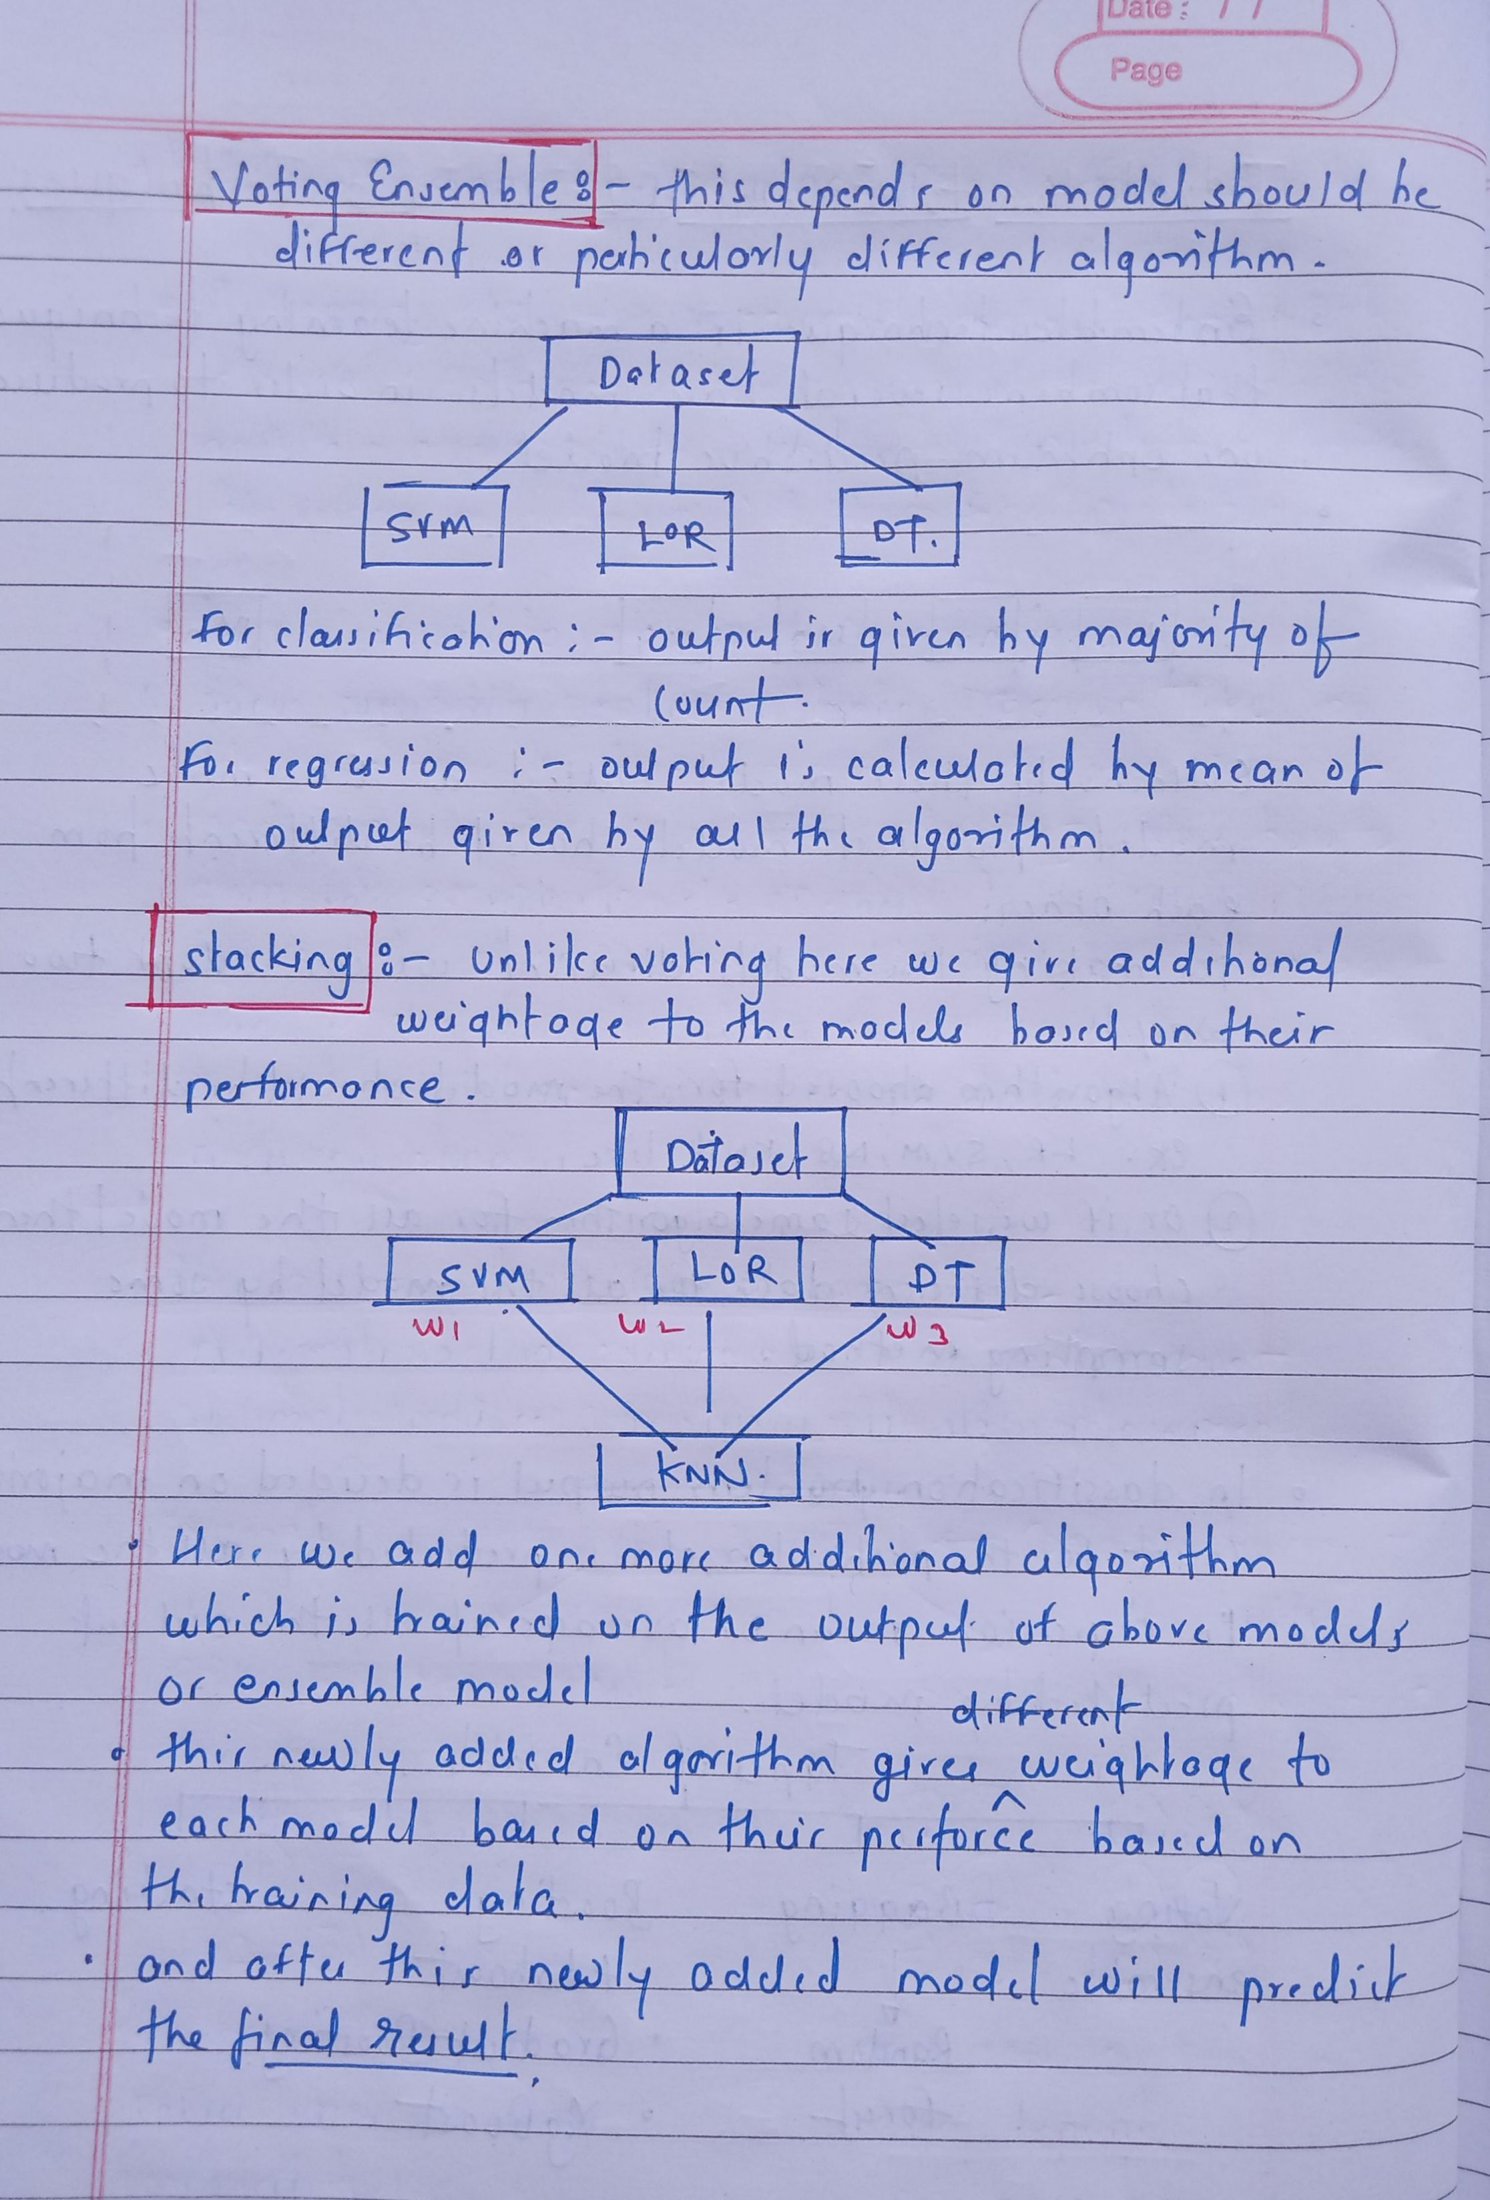 Date : / /
Page
Voting Ensemble :- this depends on model should be
different or perticulorly different algorithm.
Dataset
SVM LOR DT.
For classification :- output is given by majority of
count.
For regression :- output is calculated by mean of
output given by all the algorithm.
stacking :- Unlike voting here we give additional
weightage to the models based on their
performance.
Dataset
SVM LOR DT
W1 W2 W3
KNN.
• Here we add one more additional algorithm
which is trained on the output of above models
or ensemble model
different
• this newly added algorithm gives ^ weightage to
each model based on their perforce based on
the training data.
• and after this newly added model will predict
the final result.